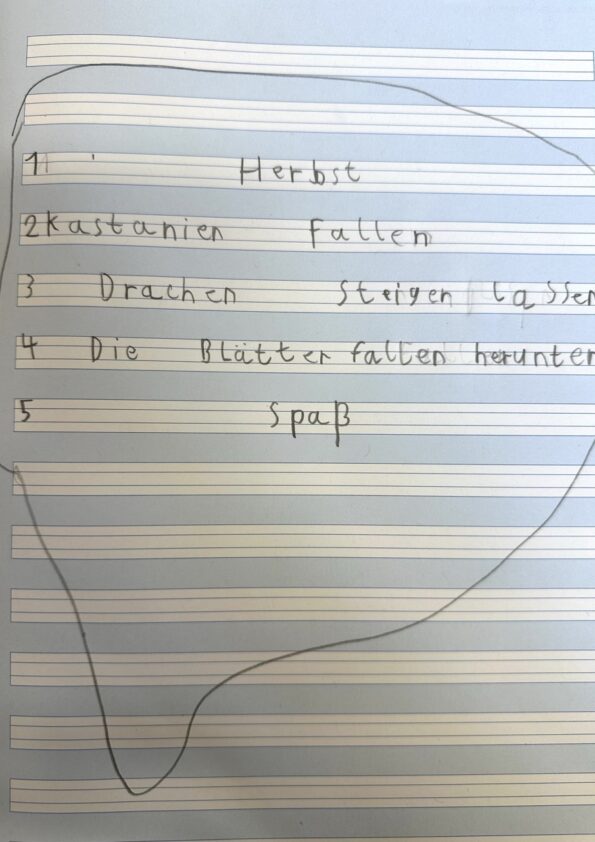 1 Herbst
2 Kastanien fallen
3 Drachen steigen lassen
4 Die Blätter fallen herunter
5 Spaß